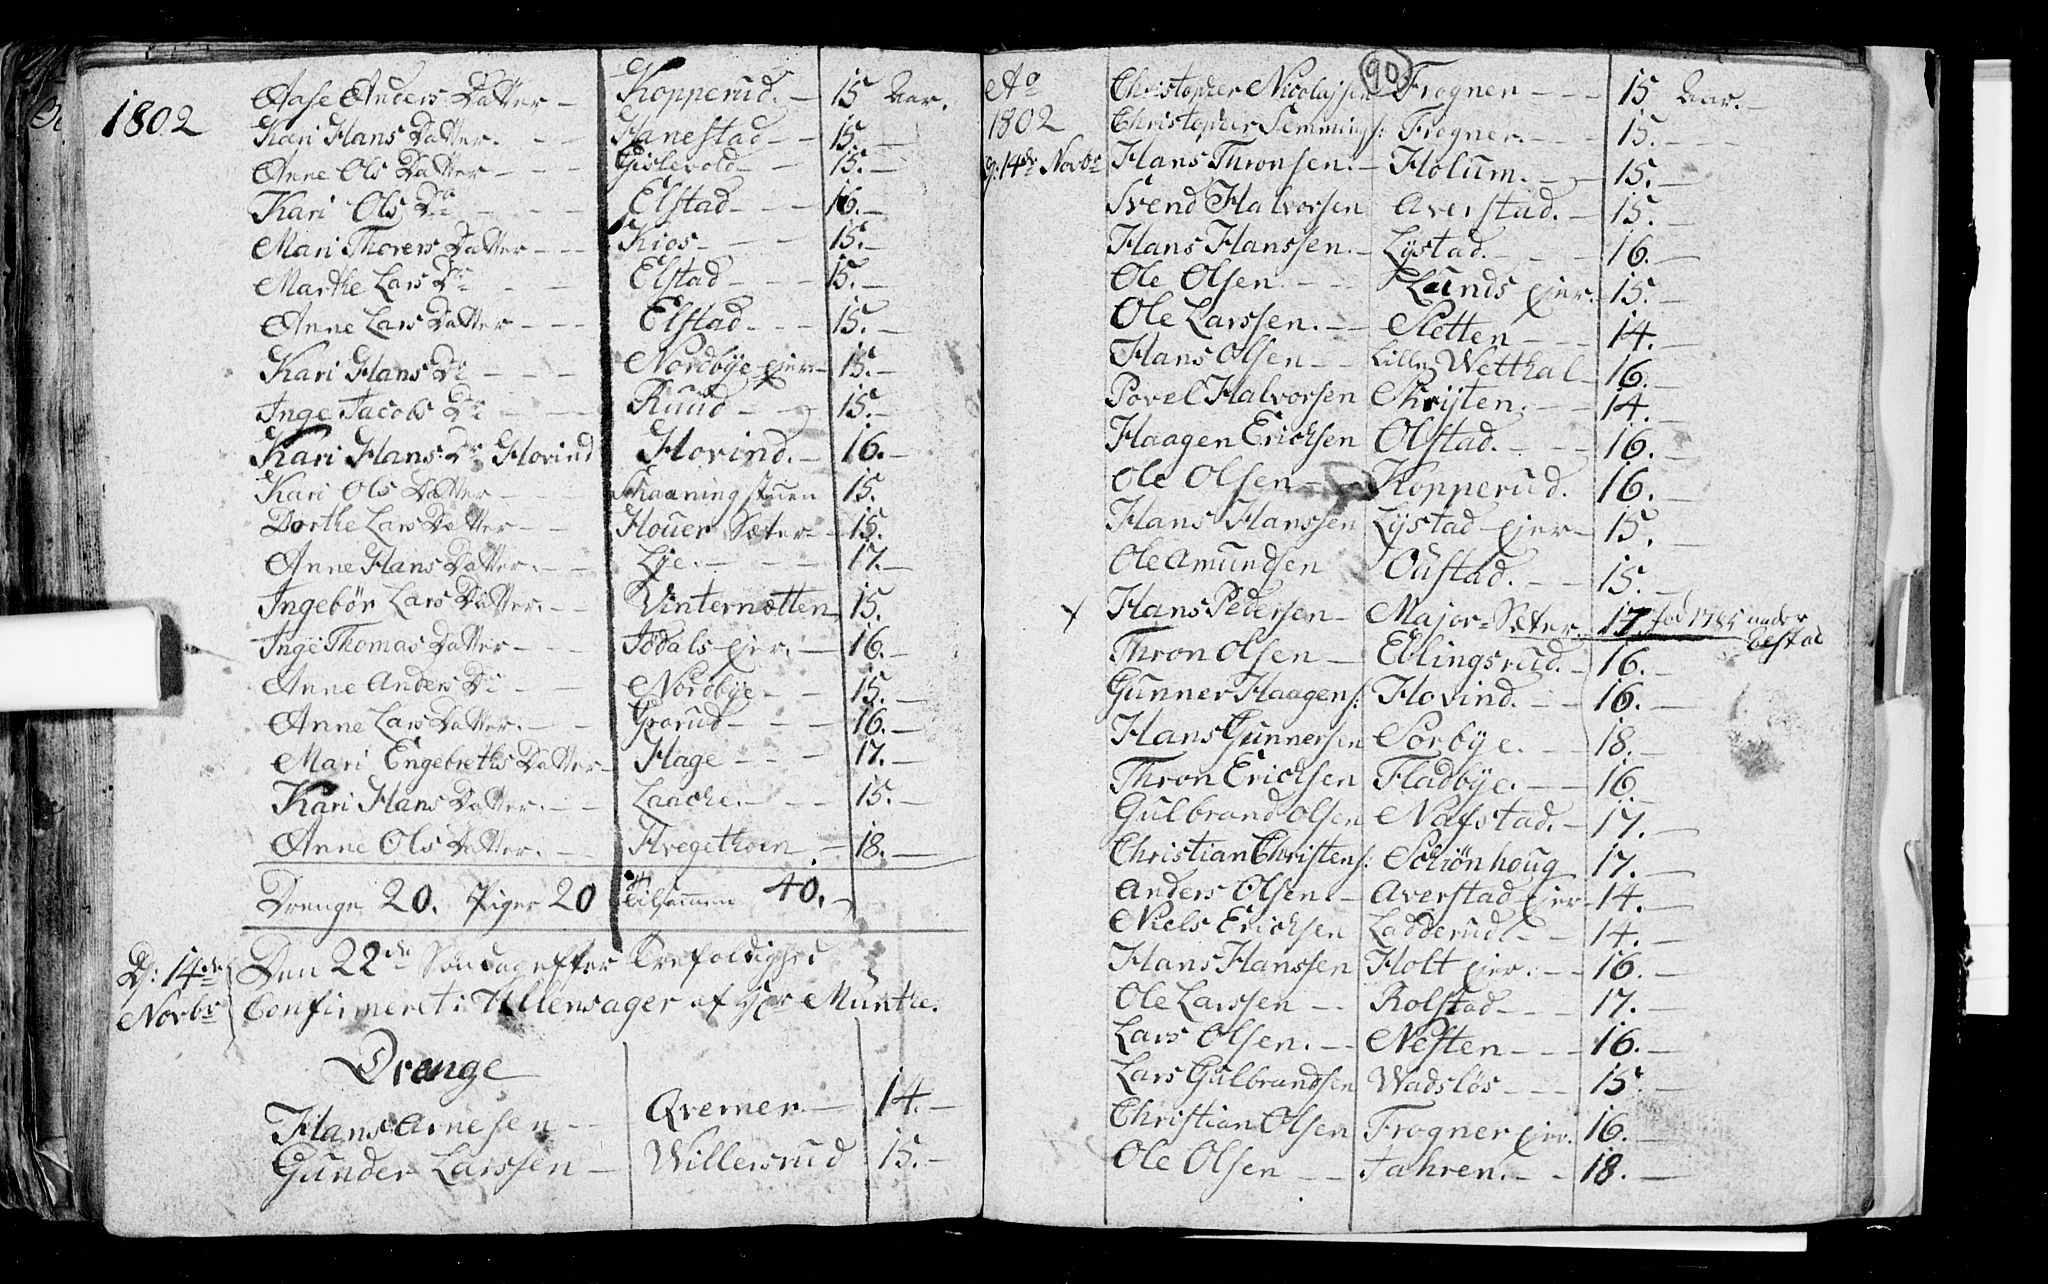 1802
Aase Anders Datter — Kopperud. — 15 Aar.
Kari Hans Datter. — Hanestad — 15. —
Anne Ols Datter — Gislevold — 15. —
Kari Ols Dr — Elstad — 16. —
Mari Thorers Datter — Kios — 15. —
Marthe Lars Dr — Elstad — 15. —
Anne Lars Datter — Elstad — 15. —
Kari Hans Dr — Nordbye ejer — 15. —
Inge Jacobs Dr — Ruud — 15. —
Kari Hans: Dr Hovind Hovind. — 16. —
Kari Ols Datter — Skaaningstuen 15.
Dorthe Lars Datter — Houer Sæter — 15. —
Anne Hans Datter. — Lye. — 17. —
Ingebör Lars Datter. — Vinternætten 15. —
Inge Thomas Datter — Jödals ejer. — 16. —
Anne Anders Dr — Nordbye — 15. —
Anne Lars Datter. — Grorud — 16. —
Mari Engebreths Datter — Hage — 17. —
Kari Hans Datter. — Laache. — 15. —
Anne Ols Datter. — Hvegethoen — 18. —
Drenge 20. Piger 20 tilsammen 40. —
D: 14de Novbr
Den 22de Söndag efter Trefoldighed
Confirmeret i Ullensager af Hr Munthe.
Drenge
Hans Arnesen — Qverner. — 14. —
Gunder Larssen — Willersrud 15. —
90
Ao 1802
D: 14de Novbr
Christopher Nicolajsen Frogner — 15 Aar. —
Christopher Semmings: Frogner. — 15. —
Hans Thronsen. — Holum. — 15. —
Svend Halvorsen Averstad. — 15. —
Hans Hanssen. — Lystad. — 16. —
Ole Olsen. — Lunds ejer. — 15. —
Ole Larssen. — Sletten — 14. —
Hans Olsen — Lille Wetthal — 16. —
Povel Halvorsen — 14. —
Haagen Ericksen Olstad. — 16. —
Ole Olsen — Kopperud. 16. —
Hans Hanssen Lystad ejer — 15. —
Ole Amundsen Oustad. — 15. —
x Hans Pedersen — Major-Sæter. 17 föd 1785 under
Thron Olsen — Eblingsrud. — 16. —
Gunner Haagens: Hovind. — 16. —
Hans Gunnersen Sörbye. — 18. —
Thron Ericksen Fladbye. — 16. —
Gulbrand Olsen Nafstad. — 17. —
Christian Christens: Schiönhoug 17. —
Anders Olsen — Averstad ejer — 14. —
Niels Ericksen Ladderud. — 14. —
Hans Hanssen Holt ejer. — 16. —
Ole Larssen — Rolstad — 17. —
Lars Olsen. — Nesten — 16. —
Lars Gulbrandsen Wadslös — 15. —
Christian Olsen Frogner ejer. 16. —
Ole Olsen — Jahren. — 18. —